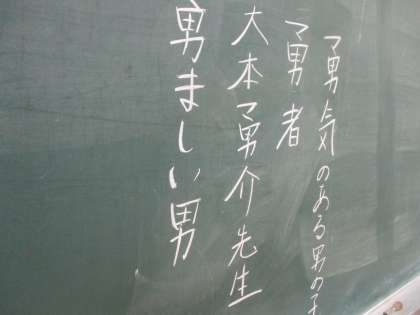 勇気のある男の子
勇者
大本勇介先生
勇ましい男